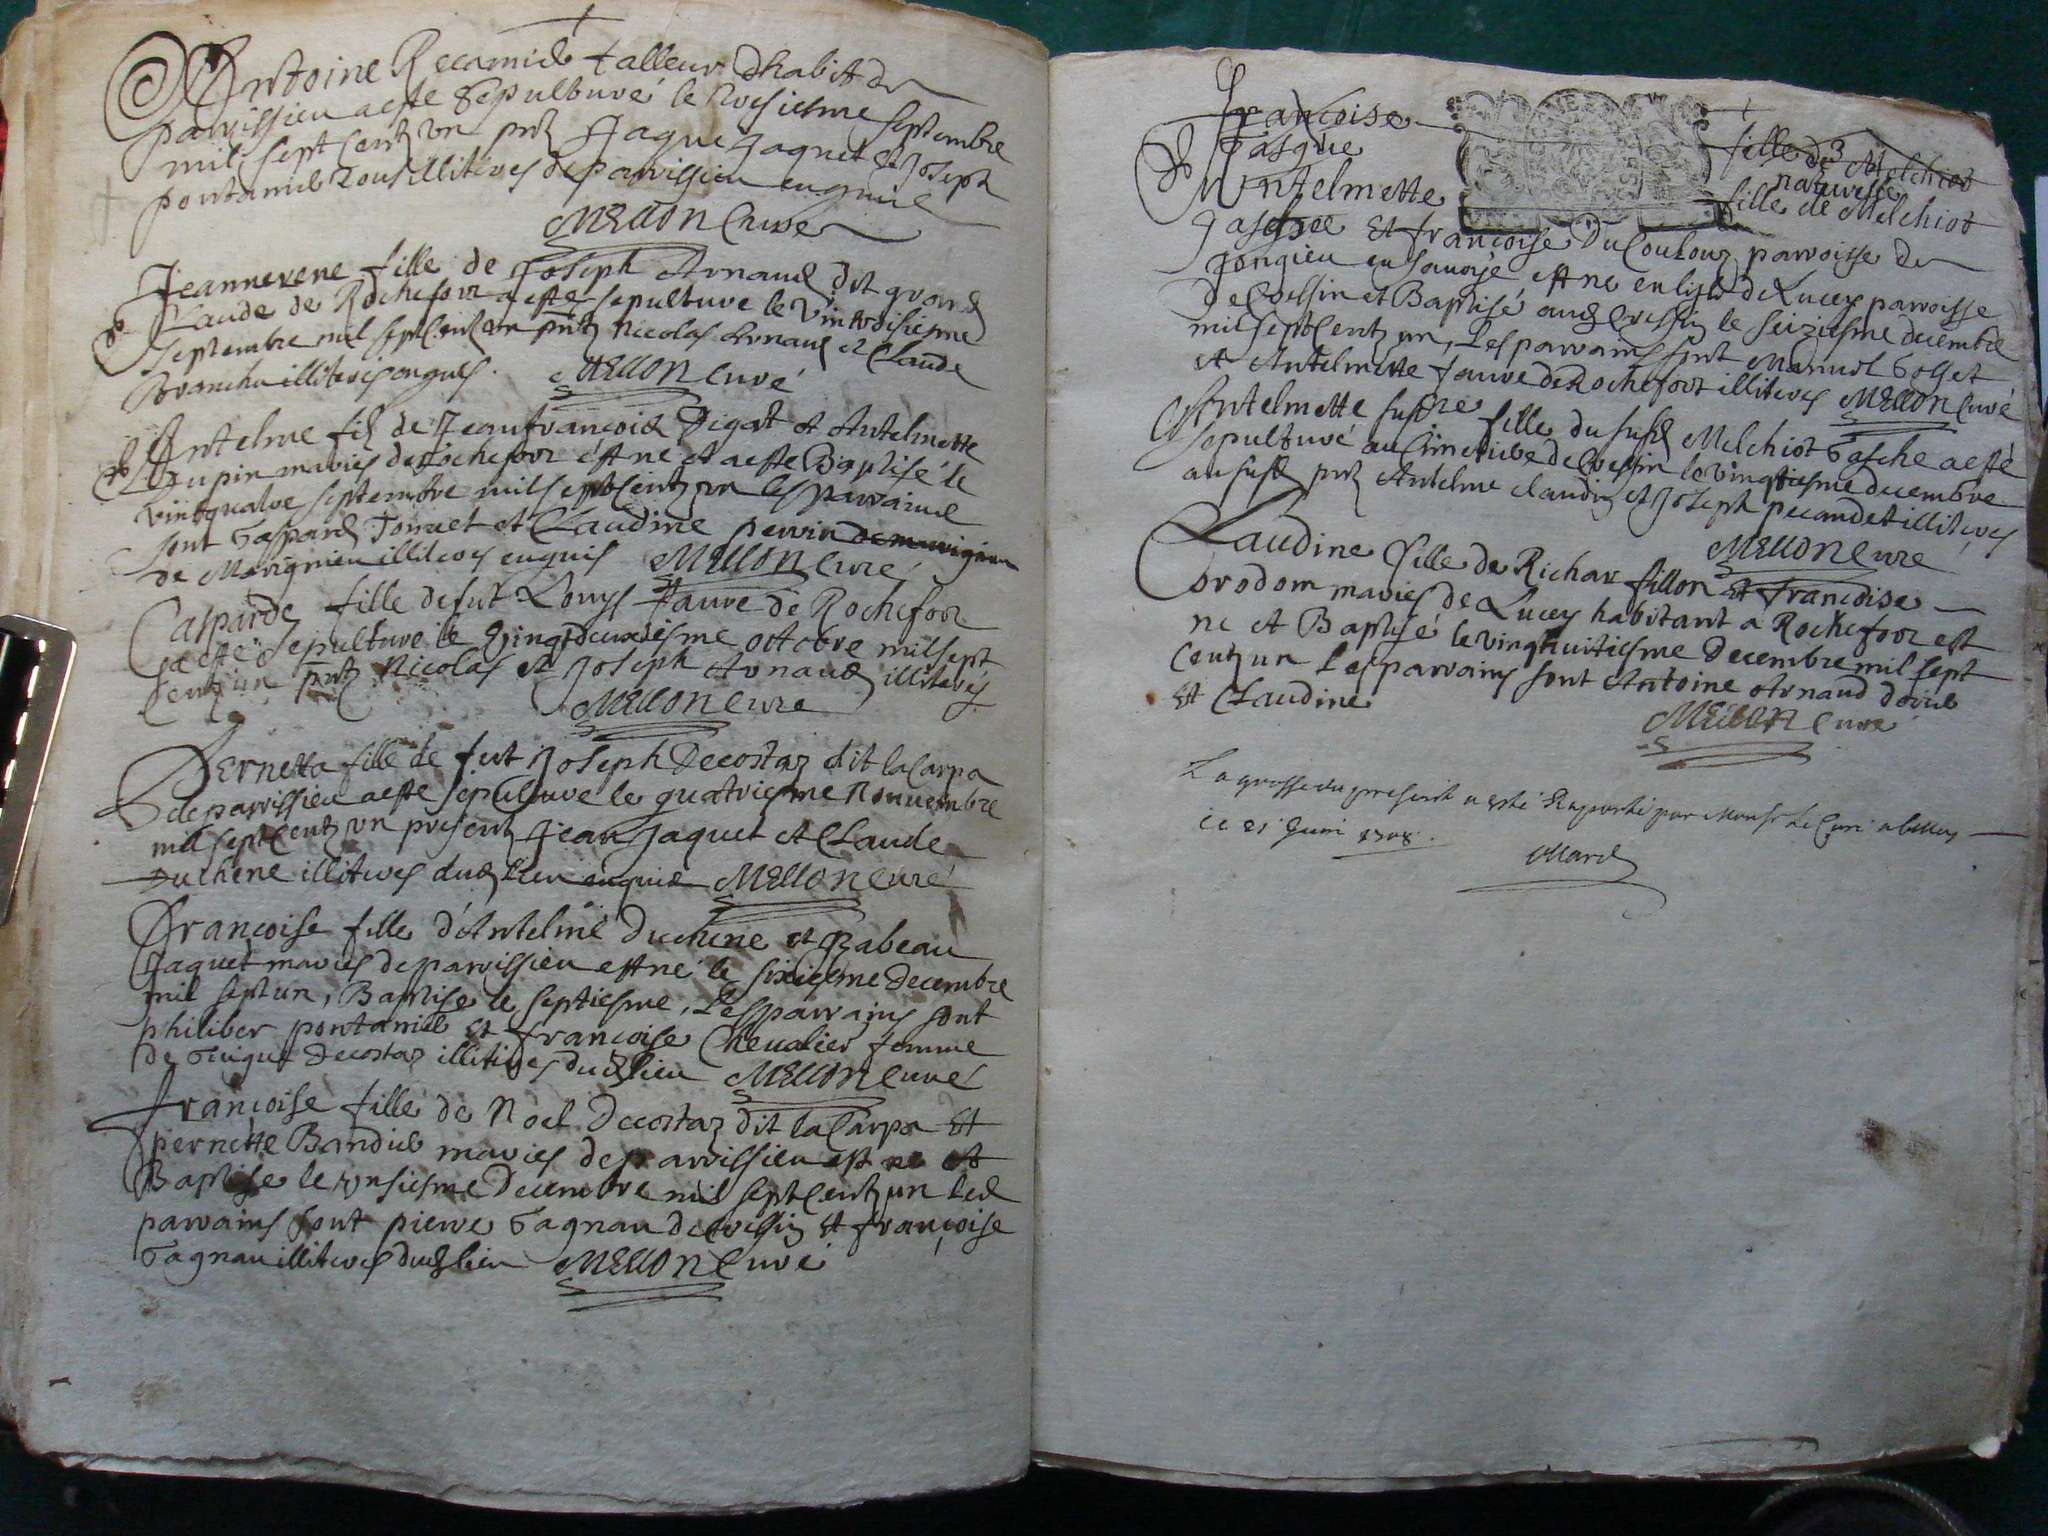 Antoine Recamier talleur dhabit de
parvissieu a esté sepulturé le septembre
mil sept centz un pntz Jaque Jaquet et Joseph
pontanier tous illiteres de parvissieu enquis
MELLON Curé
Jeannerene fille de Joseph Arnaud dit grand
Laude de Rochefort a esté sepulture le
septembre mil sept centz un pntz Nicolas Arnaud et Claude
illiteres enquis. MELLON Curé
Antelme filz de Jeanfrançois Pigat et Antelmette
Dupin mariés de Rochefort est né et a esté Baptisé le
vintquatre septembre mil sept centz un les parrains
sont Gaspard Tonnet et Claudine perrin
de Marignieu illiteres enquis MELLON Curé
Gasparde fille de fut Louys faure de Rochefort
a esté sepulture le vingtdeuxiesme octobre mil sept
centz un pntz Nicolas et Joseph Arnaud illiterés
MELLON Curé
Pernetta fille de fut Joseph Decostaz dit la Carpa
de parvissieu a esté sepulture le quatriesme Novembre
mil sept centz un presentz Jean Jaquet et Claude
Duchene illiteres dudz lieu enquis MELLON Curé
Françoise fille d'Antelme Duchene et Yzabeau
Jaquet mariés de parvissieu est né le sixiesme Decembre
mil sept un, Baptise le septiesme, Les parrains sont
philiber pontanier et françoise Chevalier femme
de Guigue Decostaz illiteres dudz lieu MELLON Curé
françoise fille de Noel Decostaz dit la Carpa Et
pernette Bandier mariés de parvissieu est né et
Baptise le unsiesme Decembre mil sept centz un Les
parrains sont pierre Gagnau de Cressin Et françoise
Gagnau illiteres dudz lieu MELLON Curé
françoise fille de Melchiot
Gasgue naturelle
Antelmette fille de Melchiot
Et françoise Du Coulouz parroisse de
Jongieu en Savoye, est né en de Lucey parroisse
de Cressin et Baptisé audz Cressin le seiziesme decembre
mil sept centz un, Les parrains sont
et Antelmette faure de Rochefort illiteres MELLON Curé
Antelmette fille du susd Melchiot Gasche a esté
sepulturé au Cimetiere de Cressin le vingtiesme decembre
an susd pntz Antelme Claudin et Joseph pecaudet illiteres
MELLON Curé
Claudine fille de Richar fillon Et françoise
brodom mariés de Lucey habitant a Rochefort est
né et Baptisé le vinghuitiesme Decembre mil sept
Centz un Les parrains sont Antoine Arnaud
Et Claudine
MELLON Curé
La grosse du present a esté Raporté par Monsr Le Curé
ce 21 Juin 1708.